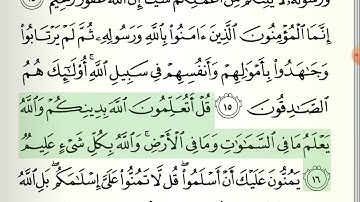 وَرَسُولَهُۥ لَا يَلِتْكُم مِّنْ أَعْمَٰلِكُمْ شَيْـًٔا إِنَّ ٱللَّهَ غَفُورٌ رَّحِيمٌ
إِنَّمَا ٱلْمُؤْمِنُونَ ٱلَّذِينَ ءَامَنُوا۟ بِٱللَّهِ وَرَسُولِهِۦ ثُمَّ لَمْ يَرْتَابُوا۟
وَجَٰهَدُوا۟ بِأَمْوَٰلِهِمْ وَأَنفُسِهِمْ فِى سَبِيلِ ٱللَّهِ ۚ أُو۟لَٰٓئِكَ هُمُ
ٱلصَّٰدِقُونَ ١٥ قُلْ أَتُعَلِّمُونَ ٱللَّهَ بِدِينِكُمْ وَٱللَّهُ
يَعْلَمُ مَا فِى ٱلسَّمَٰوَٰتِ وَمَا فِى ٱلْأَرْضِ ۚ وَٱللَّهُ بِكُلِّ شَىْءٍ عَلِيمٌ
١٦ يَمُنُّونَ عَلَيْكَ أَنْ أَسْلَمُوا۟ ۖ قُل لَّا تَمُنُّوا۟ عَلَىَّ إِسْلَٰمَكُم ۖ بَلِ ٱللَّهُ